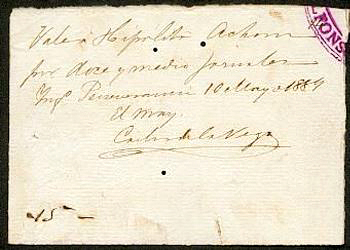 Vale á Hipolito Achon
por doce y medio jornales
Ingº Perseverancia 10 Mayo 1889
El May.
Carlos de la Vega
15
FONS